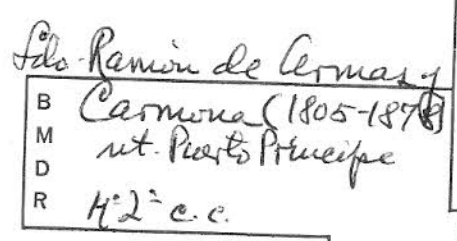 Ldo. Ramón de Armas y
B Carmona (1805-1878)
M nt. Puerto Príncipe
D
R H: 2ª c.c.